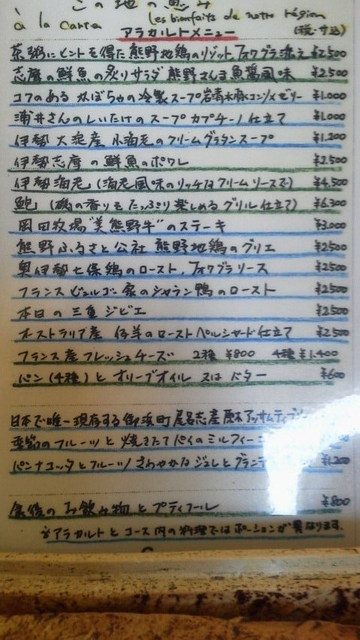 この地の恵み
à la Carte (les bienfaits de notre région
アラカルトメニュー (税・サ込)
茶粥にヒントを得た熊野地鶏のリゾット、フォアグラ添え ¥2500
志摩の鮮魚の炙りサラダ 熊野さんま魚醤風味 ¥2500
コクのあるかぼちゃの冷製スープ 岩清水豚コンソメゼリー ¥1000
浦井さんのしいたけのスープ カプチーノ仕立て ¥1,000
伊勢大淀産 小海老のクリームグラタンスープ ¥1,200
伊勢志摩の鮮魚のポワレ ¥2500
伊勢海老 (海老風味のリッチなクリームソースで) ¥4,500
鮑 の香りをたっぷり楽しめるグリル仕立て ¥6,300
岡田牧場"美熊野牛"のステーキ ¥3,000
熊野ふるさと公社 熊野地鶏のグリエ ¥2500
奥伊勢七保鶏のロースト、フォアグラソース ¥2500
フランス ビュルゴー家のシャラン鴨のロースト ¥2500
本日の三重ジビエ ¥2500
オーストラリア産 仔羊のロースト ペルシヤード仕立て ¥2500
フランス産フレッシュチーズ 2種 ¥800 4種 ¥1,400
パン(4種)とオリーブオイル 又は バター ¥600
日本で唯一現存する御浜町尾呂志産原木アッサム
季節のフルーツと焼きたてパイのミルフィーユ
パンナコッタとフルーツ さわやかなジュレとグラニテ ¥1,200
食後のお飲み物とプティフール ¥800
※アラカルトとコース内の料理ではポーションが異なります。